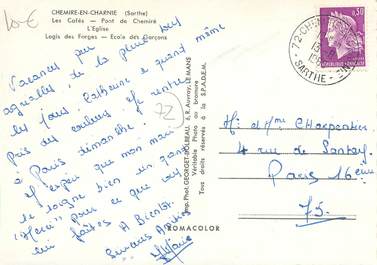 10€
CHEMIRE-EN-CHARNIE (Sarthe)
Les Cafés - Pont de Chemiré
L'Eglise
Logis des Forges - Ecole des Garçons
72-CHEM
SARTHE
0,30
REPUBLIQUE FRANCAISE
Vacances peu
agréables, de la pluie tous
les jours. Catherine a quand même
pris des couleurs. Je rentre
à Paris dimanche.
J'espère que mon mari
se soigne bien un grand
"Merci" pour ce que vous
lui faites. A Bientôt.
72
Imp. Phot. GEORGET-JOLBEAU, 6, R. Auvray, LE MANS
Véritable Photo au bromure
Tous droits réservés à la S.P.A.D.E.M.
ROMACOLOR
Mr et Mme Charpentier
4 rue de Sontay
Paris 16ème
75.